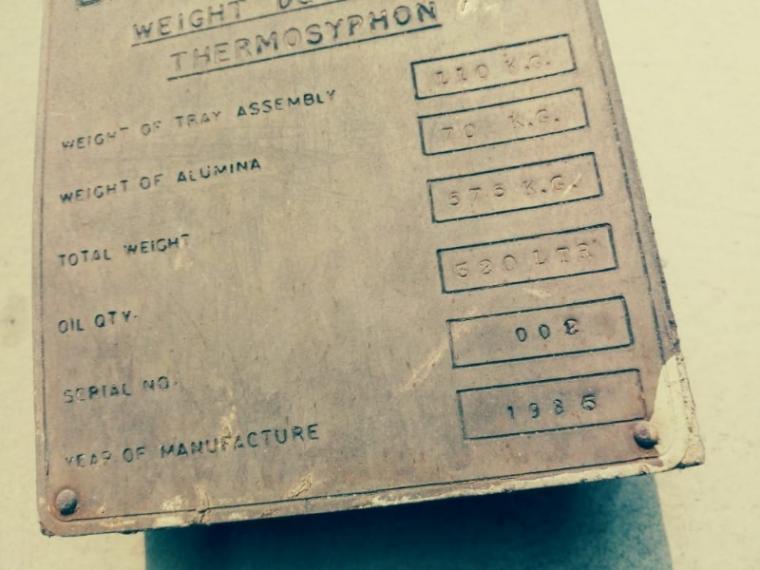 WEIGHT
THERMOSYPHON
WEIGHT OF TRAY ASSEMBLY 110 K.G.
WEIGHT OF ALUMINA 70 K.G.
TOTAL WEIGHT 575 K.G.
OIL QTY. LTR
SERIAL NO. 002
YEAR OF MANUFACTURE 1985